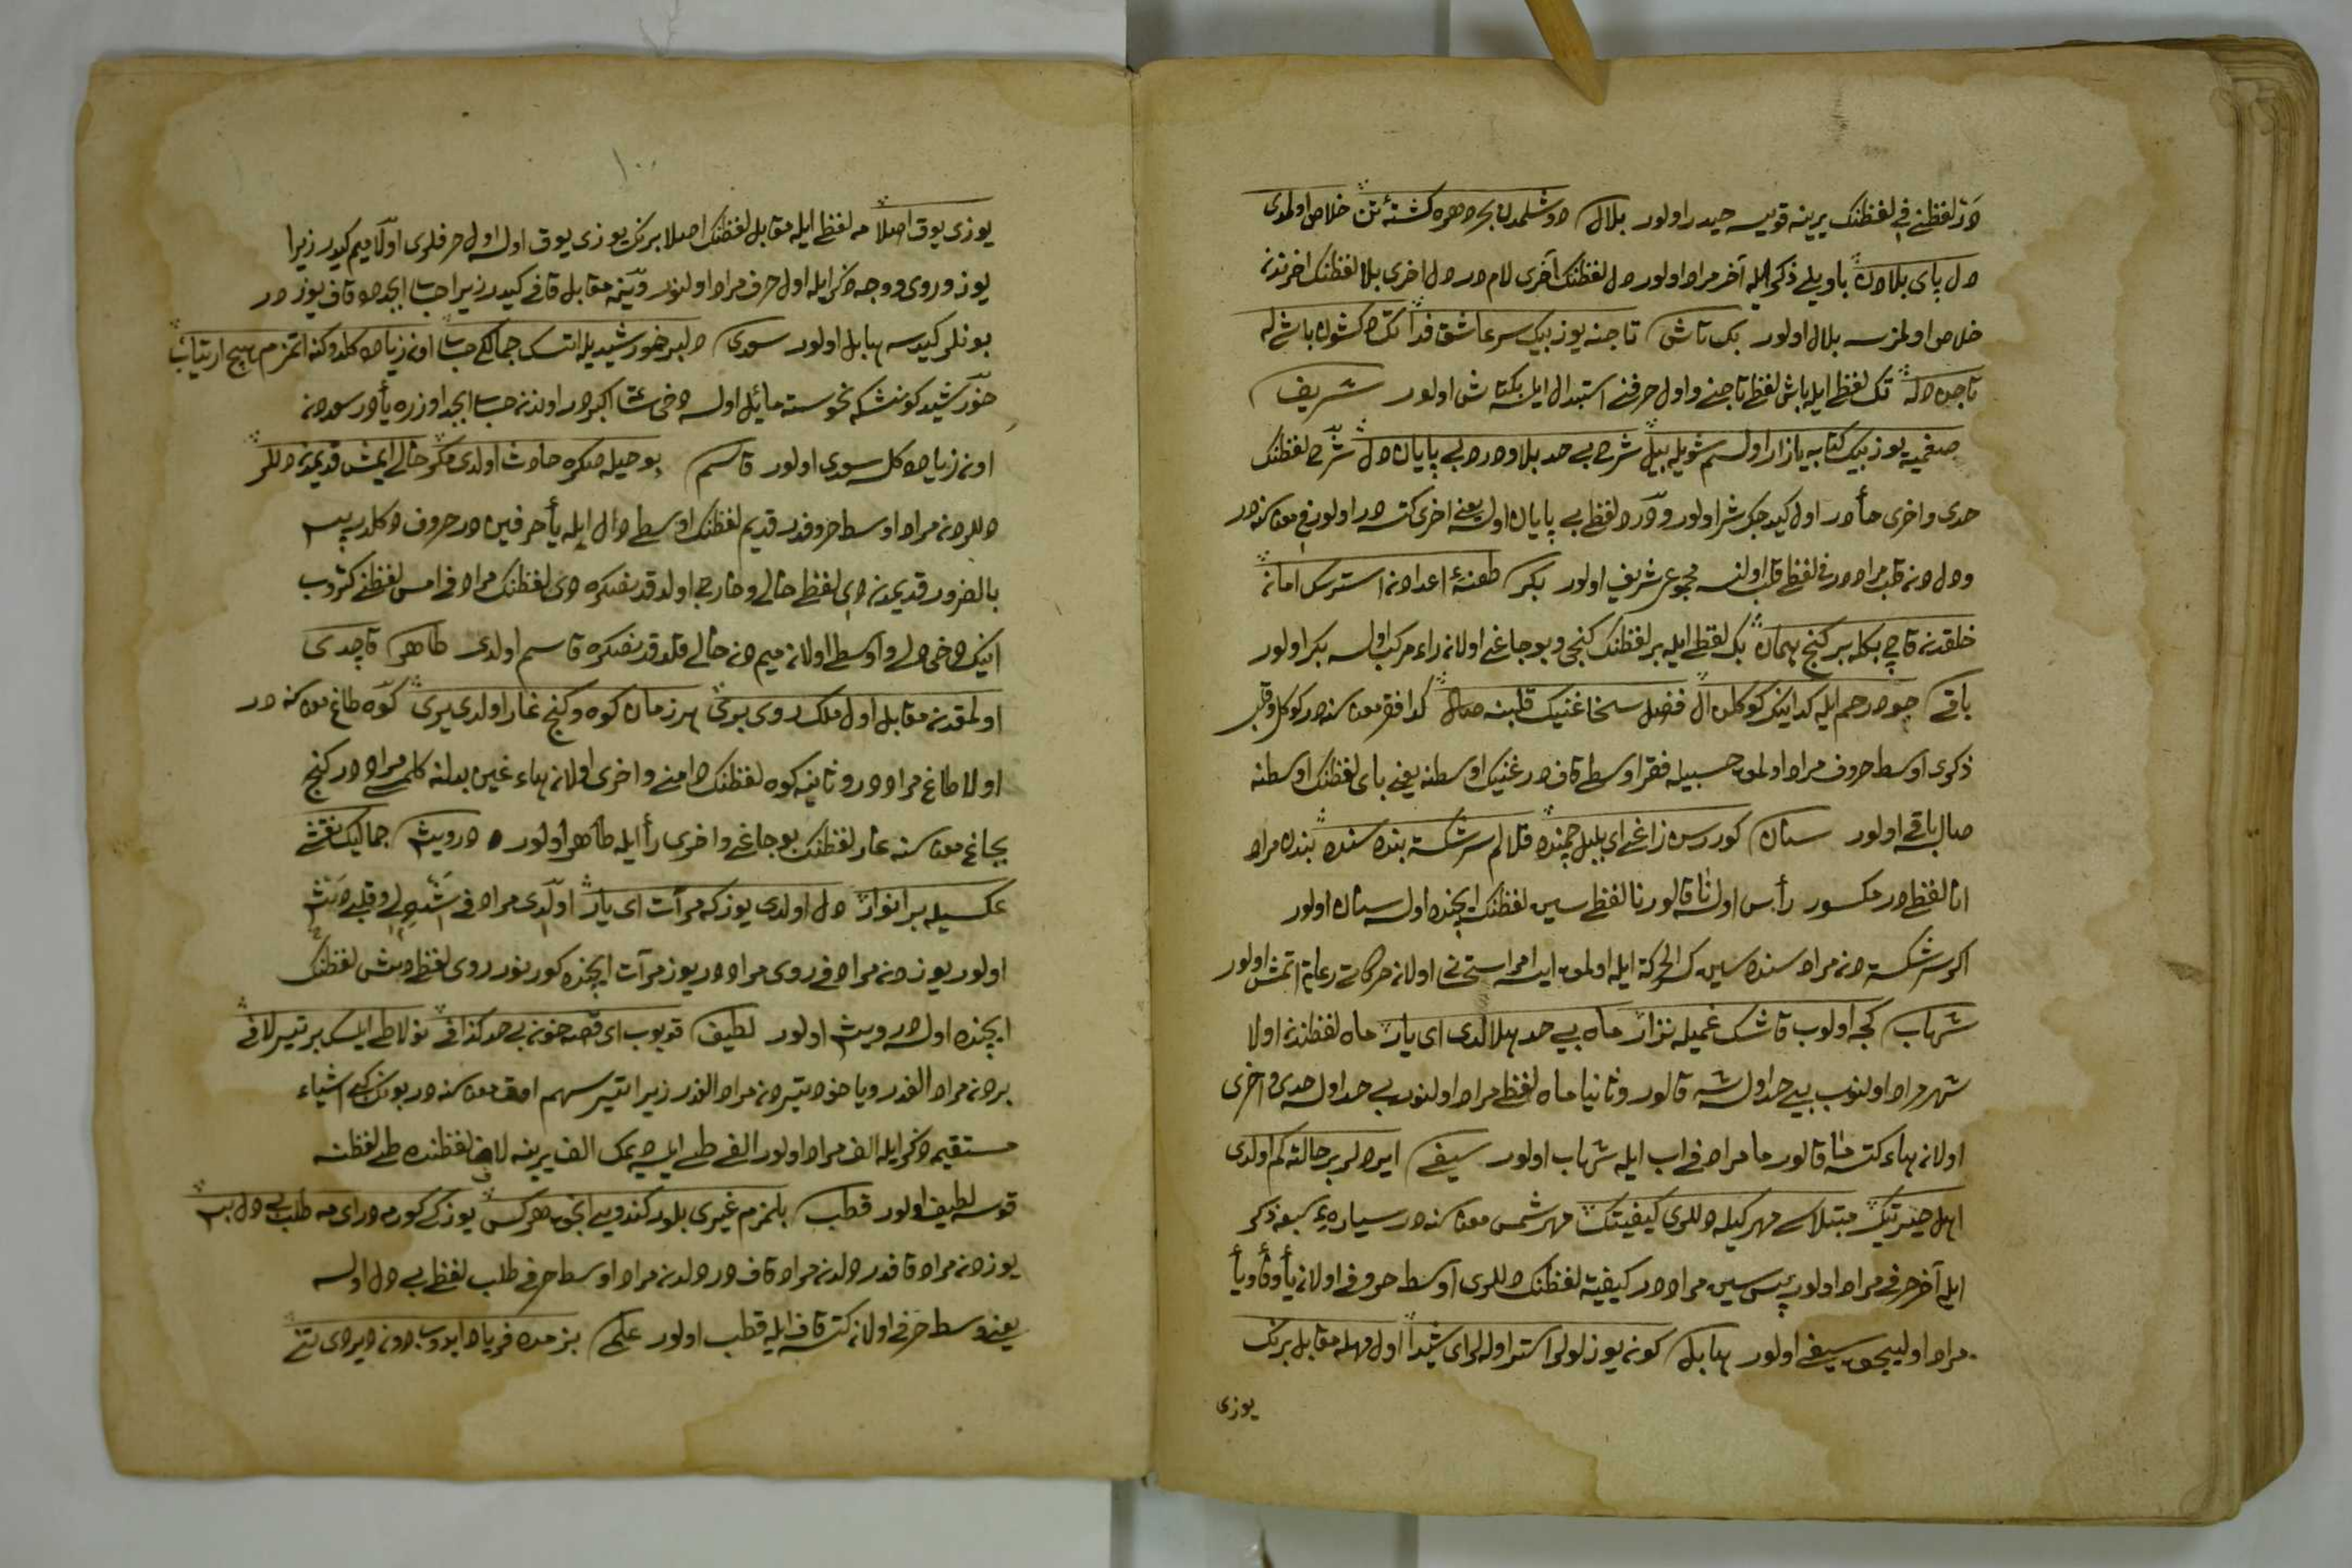 در لفظنی فی لفظنك یرینه قویسه حیدر اولور بلال دوشلمدن بحر دهره كشتئ تن خلاص اولمدی
دل پای بلادن با ویلی ذكر ایله آخر مراد اولور دل لفظنك آخری لام در دل اخری بلا لفظنك اخرندن
خلاص اولمزسه بلال اولور بك تاش تا جنه یوز بیك سر عاشق فدا تك كشون باش له
تاجده در تك لفظ ایله باش لفظ تاجنی و اول حرفنی استبدال ایله بكتاش اولور شریف
صفحیه یوز بیك كتابه یازار اولسم شویله بیل شرح بی حد بلا و درد بی پایان دل شرح لفظنك
حدی و اخری حأ در اول كیدیجك شر اولور و درد لفظ بی پایان اولسه یعنی اخری كتسه در اولور فی معناسنه در
و دل دن قلب مراد در فی لفظ قلب اولنسه مجموعی شریف اولور بكر طعنهٔ اعدادن استرسك امان
خلقدن قاچ بكله بر كنج نهان بك لفظ ایله بر لفظنك كنجی و بوجاغی اولان راء مركب اولسه بكر اولور
باقی جود و رحم ایله كدانیك كوكلن ال فضل سخا غنیك قلبنه صال كدا فقر معناسنه در كوكل و قلب
ذكری اوسط حروف مراد اولمق حسبیله فقر اوسطی قاف در غنیك اوسطنه یعنی بای لفظنك اوسطنه
صال باقی اولور سنان كوررسن زاغی ای بلبل چمنده قلالم سرشكسته بنده سنده بنده مراد
انا لفظ در مكسور رأس اولسه نا قالور نا لفظ سین لفظنك ایچنده اولسه سنان اولور
اكر سرشكسته دن مراد سنده سین ك الحركة ایله اولمق ایسه امر استحسانی اولان حركاته رعایة اتمش اولور
شهاب كجه اولوب قاشك غمیله نزار ماه بی حد هلالدی ای یار ماه لفظندن اولا
شهر مراد اولنوب بی حد اولسه شه قالور و ثانیا ماه لفظ مراد اولنوب بی حد اولسه حدی و اخری
اولان هاء كتسه ما قالور ما مراد فی اب ایله شهاب اولور سیفی ایردلر بر حالته كم اولدی
اهل حیرتك مبتلاسی مهر كیله دللری كیفیتك مهر شمس معناسنه در سیارهٔ سبعه ذكر
ایله آخر حرفی مراد اولور پس سین مراد در كیفیة لفظنك دللری اوسط حروفی اولان یأ و فأ و یأ
مراد اولیجق سیفی اولور هابل كونه یوز لولر استر اوله لر ای شیدا اول مهله مقابل برنك
یوزی
١٠٠
یوزی یوق اصلا مه لفظ ایله مقابل لفظنك اصلا برنك یوزی یوق اولسه اول حرفلری اولا میم كیدر زیرا
یوز و روی و وجه ذكر ایله اول حرف مراد اولنور و ینه مقابل قافی كیدر زیرا حساب ابجدده قاف یوز در
بونلر كیدسه هابل اولور سودی دلبر خورشیدیله التسك جمالك حساب اون زیاده كلدوكنه اتمزم هیچ ارتیاب
خورشید كونشكه نحوسته مائل اولسه دخی شا اكبر در اوندن حساب ابجد اوزره یأ در سعدن
اون زیاده كلسه سودی اولور قاسم بو حیله صكره حادث اولدی مكر خالی ایمش قدیمدن دللر
دللردن مراد اوسط حروفدر قدیم لفظنك اوسطی دال ایله یأ حرفین در حروف دكلدر پس
بالضرور قدیمدن دی لفظ خالی و خارجی اولدقدنصكره دی لفظنك مراد فی امس لفظنی كتروب
انیك دخی دلی و اوسطی اولان میم دن خالی قلدقدنصكره قاسم اولدی طاهر قاچدی
اولمقدن مقابل اول ملك روی بری هر زمان كوه و كنج غار اولدی یری كوه طاغ معناسنه در
اولا طاغ مراد در و ثانیه كوه لفظنك دامنی و اخری اولان هاء غین بدلنه كلمسی مراد در كنج
بجاغ معناسنه غار لفظنك بوجاغی و اخری رأ ایله طاهر اولور درویش جمالیك نقشی
عكسیله پر انوار دل اولدی یوزكه مرآت ای یار اولدی مراد فی شد دلی و قلبی دش
اولور یوزدن مراد فی روی مراد در یوز مرآت ایچنده كورینور روی لفظ دش لفظنك
ایچنده اولسه درویش اولور لطیف قویوب ای قصه خون بی حد كذافی نولا طی ایلسك بر تیر لافی
بردن مراد الفدر و یا خود تیردن مراد الفدر زیرا تیر سهم اوق معناسنه در بونك كبی اشیاء
مستقیم ذكر ایله الف مراد اولور الفی طی ایله دیمك الف یرینه لاف لفظنده طی لفظنه
قوسه لطیف اولور قطب بلمزم غیری بلور كندویی انجق هر كس یوزكی كورمه در ای مه طلب بی دل بس
یوزدن مراد قافدر دلدن مراد قاف در دلدن مراد اوسط حرفی طلب لفظ بی دل اولسه
یعنی وسط حرفی اولان كتسه قاف ایله قطب اولور علمی بزمده فریاد ایدوب دون دیردی نی